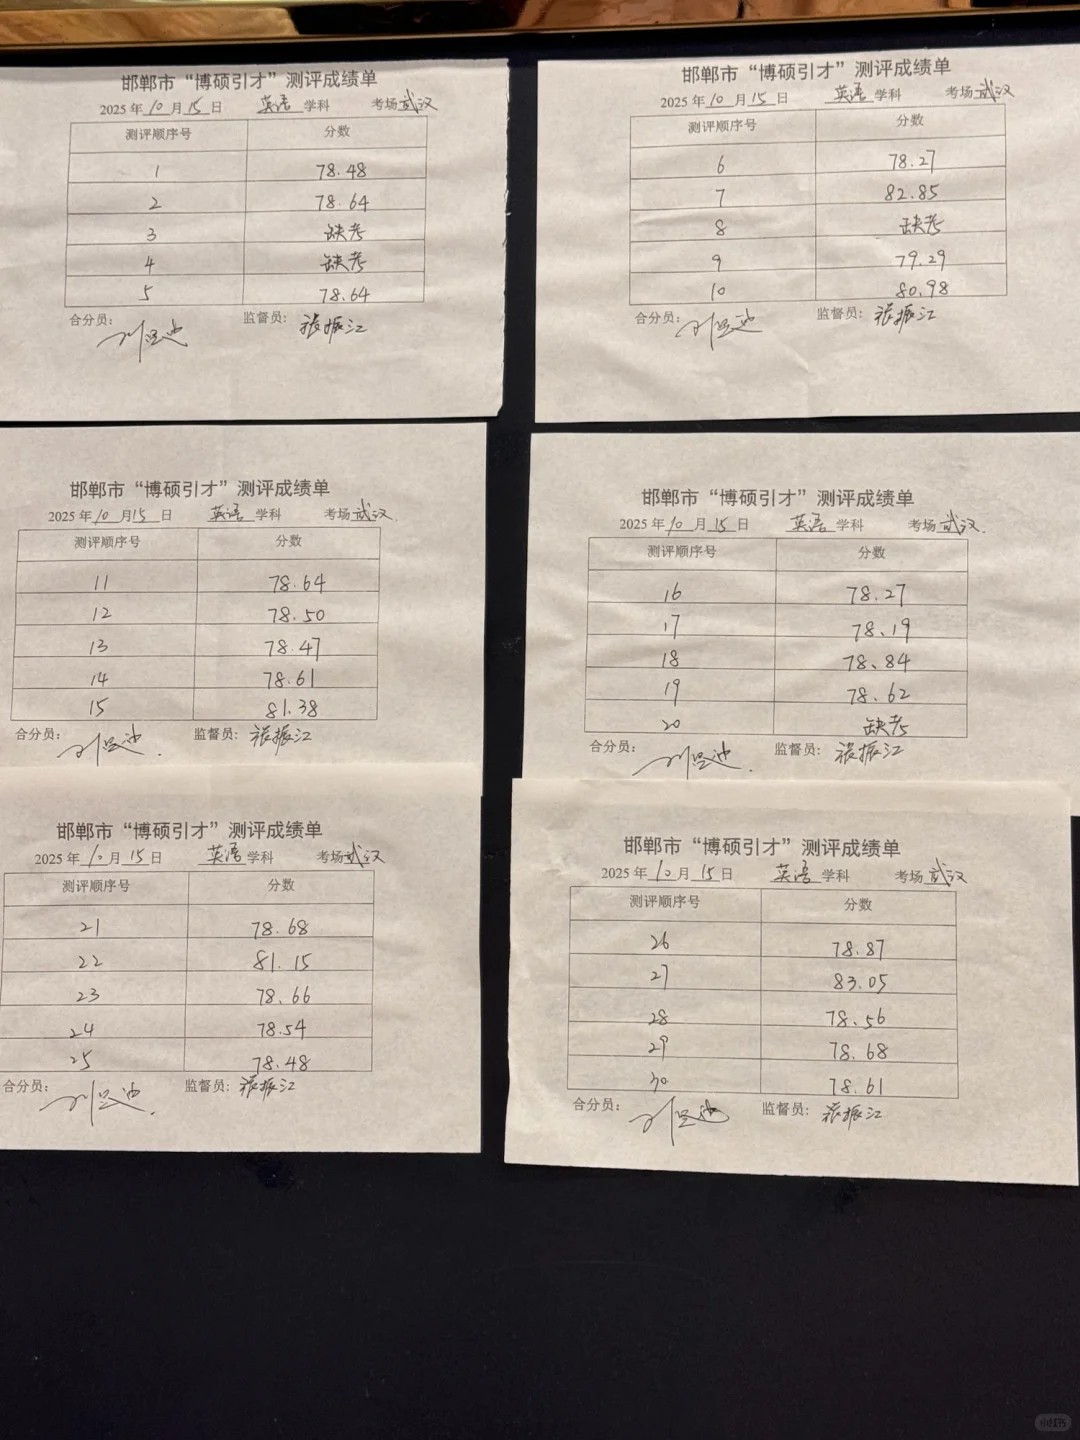 邯郸市“博硕引才”测评成绩单
2025年10月15日 英语学科 考场武汉
测评顺序号 分数
1 78.48
2 78.64
3 缺考
4 缺考
5 78.64
合分员： 监督员: 张振江
邯郸市“博硕引才”测评成绩单
2025年10月15日 英语学科 考场武汉
测评顺序号 分数
6 78.27
7 82.85
8 缺考
9 79.29
10 80.98
合分员： 监督员: 张振江
邯郸市“博硕引才”测评成绩单
2025年10月15日 英语学科 考场武汉
测评顺序号 分数
11 78.64
12 78.50
13 78.47
14 78.61
15 81.38
合分员： 监督员: 张振江
邯郸市“博硕引才”测评成绩单
2025年10月15日 英语学科 考场武汉
测评顺序号 分数
16 78.27
17 78.19
18 78.84
19 78.62
20 缺考
合分员： 监督员: 张振江
邯郸市“博硕引才”测评成绩单
2025年10月15日 英语学科 考场武汉
测评顺序号 分数
21 78.68
22 81.15
23 78.66
24 78.54
25 78.48
合分员： 监督员: 张振江
邯郸市“博硕引才”测评成绩单
2025年10月15日 英语学科 考场武汉
测评顺序号 分数
26 78.87
27 83.05
28 78.56
29 78.68
30 78.61
合分员： 监督员: 张振江
小红书